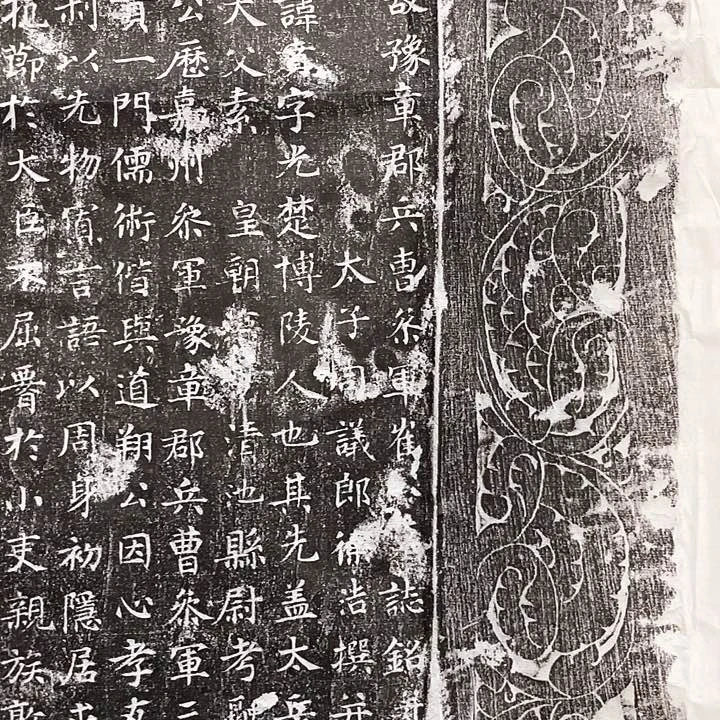 故豫章郡兵曹叅軍崔 誌銘
太子 議郎 浩撰并
諱 字光楚博陵人也其先盖太岳
大父素 皇朝 清池縣尉考
公歷嘉州叅軍豫章郡兵曹叅軍三
一門儒術偕與道翔公因心孝友
利以先物 言語以周身初隱居
抗節於大臣不屈 於小吏親族